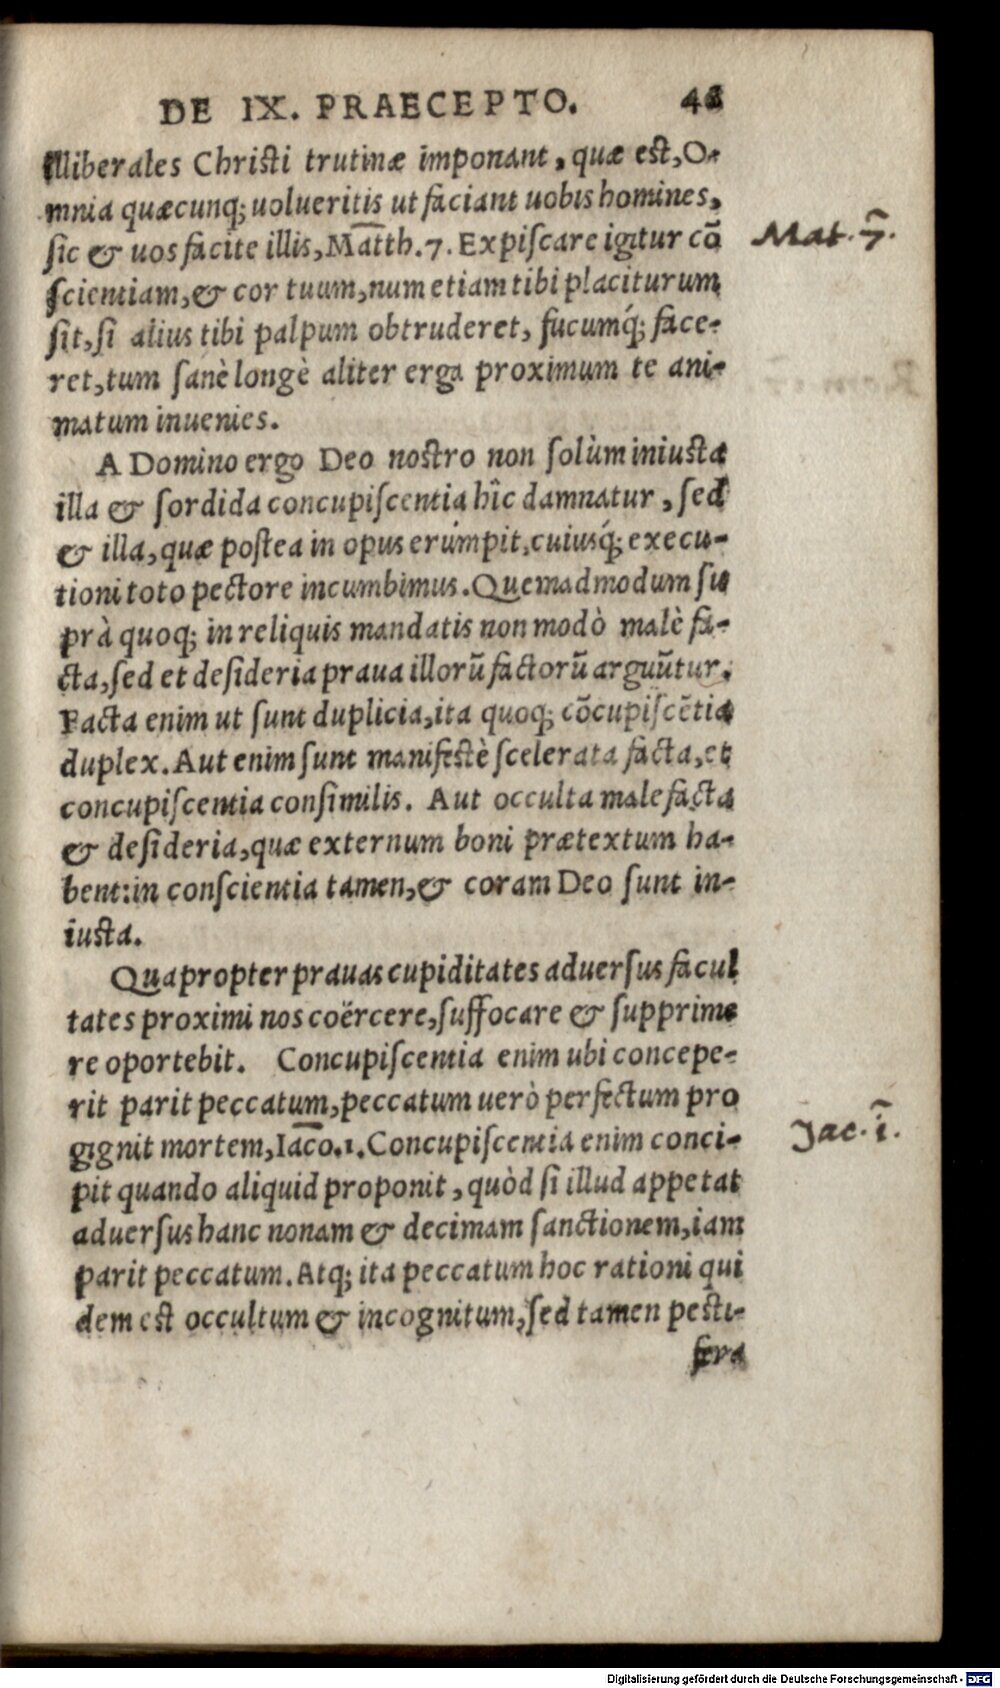 DE IX. PRAECEPTO. 48
illiberales Christi trutinæ imponant, quæ est, O-
mnia quæcunq; uolueritis ut faciant uobis homines,
sic & uos facite illis, Matth. 7. Expiscare igitur cō
Mat. 7.
scientiam, & cor tuum, num etiam tibi placiturum
sit, si alius tibi palpum obtruderet, fucumq́; face-
ret, tum sanè longè aliter erga proximum te ani-
matum inuenies.
A Domino ergo Deo nostro non solùm iniusta
illa & sordida concupiscentia hîc damnatur, sed
& illa, quæ postea in opus erúmpit, cuiusq́; execu-
tioni toto pectore incumbimus. Quemadmodum su
prà quoq; in reliquis mandatis non modò malè fa-
cta, sed et desideria praua illorū factorū arguūtur.
Facta enim ut sunt duplicia, ita quoq; cōcupiscētia
duplex. Aut enim sunt manifestè scelerata facta, et
concupiscentia consimilis. Aut occulta malefacta
& desideria, quæ externum boni prætextum ha-
bent: in conscientia tamen, & coram Deo sunt in-
iusta.
Quapropter prauas cupiditates aduersus facul
tates proximi nos coërcere, suffocare & supprime
re oportebit. Concupiscentia enim ubi concepe-
rit parit peccatum, peccatum uerò perfectum pro
gignit mortem, Iaco. 1. Concupiscentia enim conci-
Jac. i.
pit quando aliquid proponit, quòd si illud appetat
aduersus hanc nonam & decimam sanctionem, iam
parit peccatum. Atq; ita peccatum hoc rationi qui
dem est occultum & incognitum, sed tamen pesti-
fera
Digitalisierung gefördert durch die Deutsche Forschungsgemeinschaft - DFG